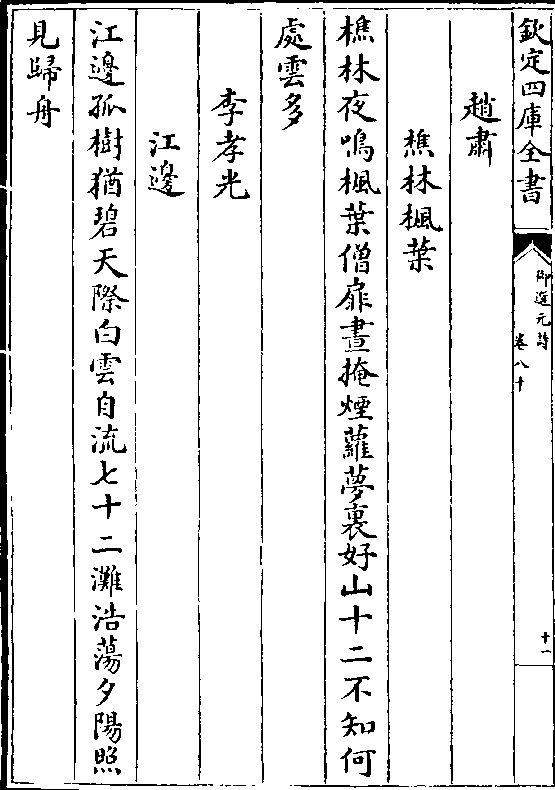 欽定四庫全書
御選元詩
卷八十
十一
趙肅
樵林楓葉
樵林夜鳴楓葉僧扉晝掩煙蘿夢裏好山十二不知何
處雲多
李孝光
江邊
江邊孤樹猶碧天際白雲自流七十二灘浩蕩夕陽照
見歸舟